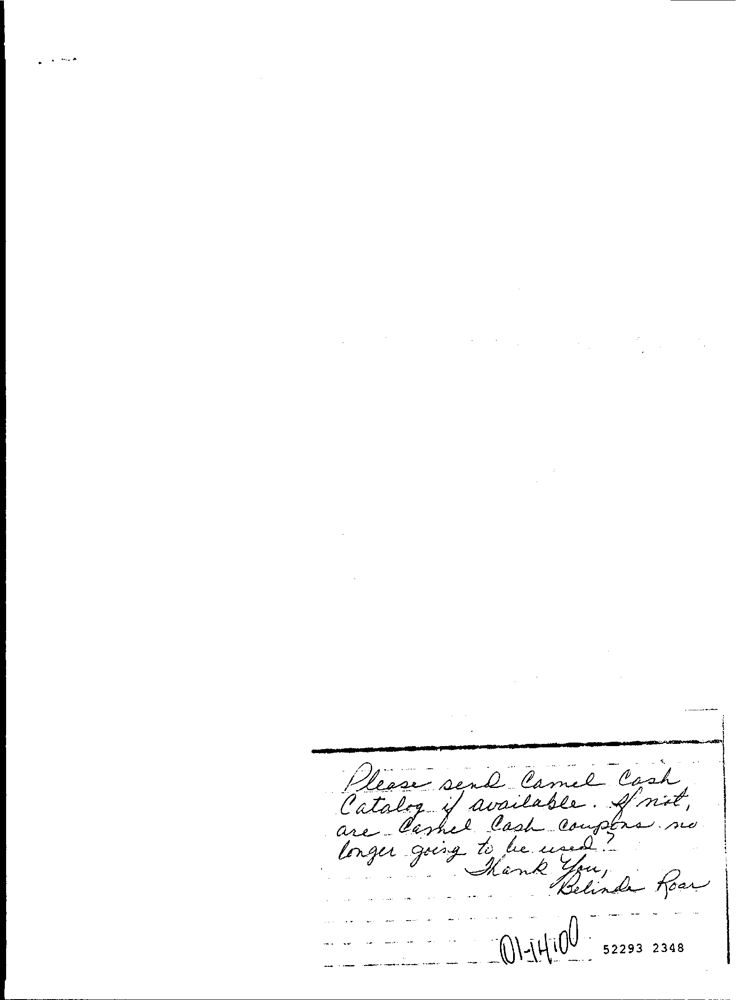 Please send Camel Cash
Catalog if available. If not,
are Camel Cash coupons no
longer going to be used?
Thank You,
Belinda Roar
01-14-00
52293 2348